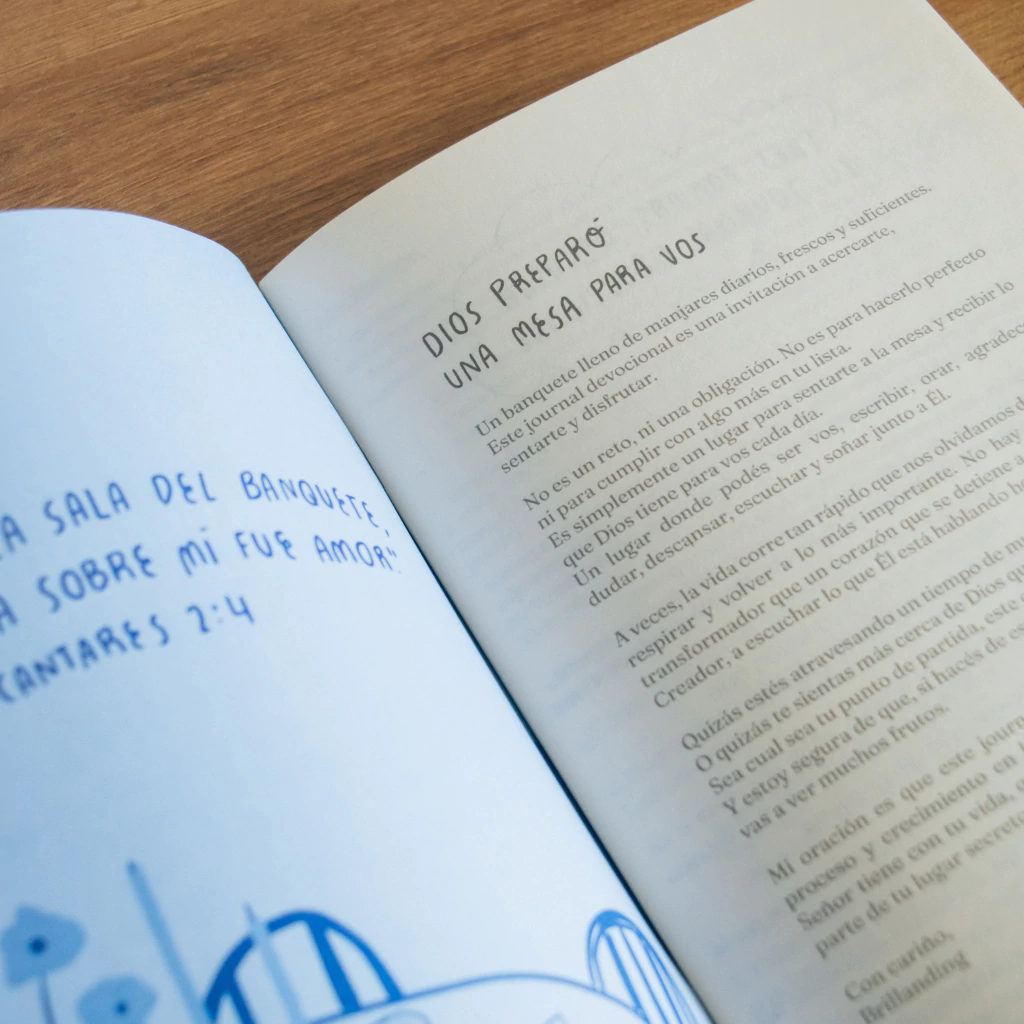 A SALA DEL BANQUETE,
A SOBRE MÍ FUE AMOR".
CANTARES 2:4
DIOS PREPARÓ
UNA MESA PARA VOS
Un banquete lleno de manjares diarios, frescos y suficientes.
Este journal devocional es una invitación a acercarte,
sentarte y disfrutar.
No es un reto, ni una obligación. No es para hacerlo perfecto
ni para cumplir con algo más en tu lista.
Es simplemente un lugar para sentarte a la mesa y recibir lo
que Dios tiene para vos cada día.
Un lugar donde podés ser vos, escribir, orar, agradec
dudar, descansar, escuchar y soñar junto a Él.
A veces, la vida corre tan rápido que nos olvidamos d
respirar y volver a lo más importante. No hay
transformador que un corazón que se detiene a
Creador, a escuchar lo que Él está hablando ho
Quizás estés atravesando un tiempo de mu
O quizás te sientas más cerca de Dios qu
Sea cual sea tu punto de partida, este
Y estoy segura de que, si hacés de es
vas a ver muchos frutos.
Mi oración es que este journ
proceso y crecimiento en
Señor tiene con tu vida,
parte de tu lugar secreto
Con cariño,
Brillanding